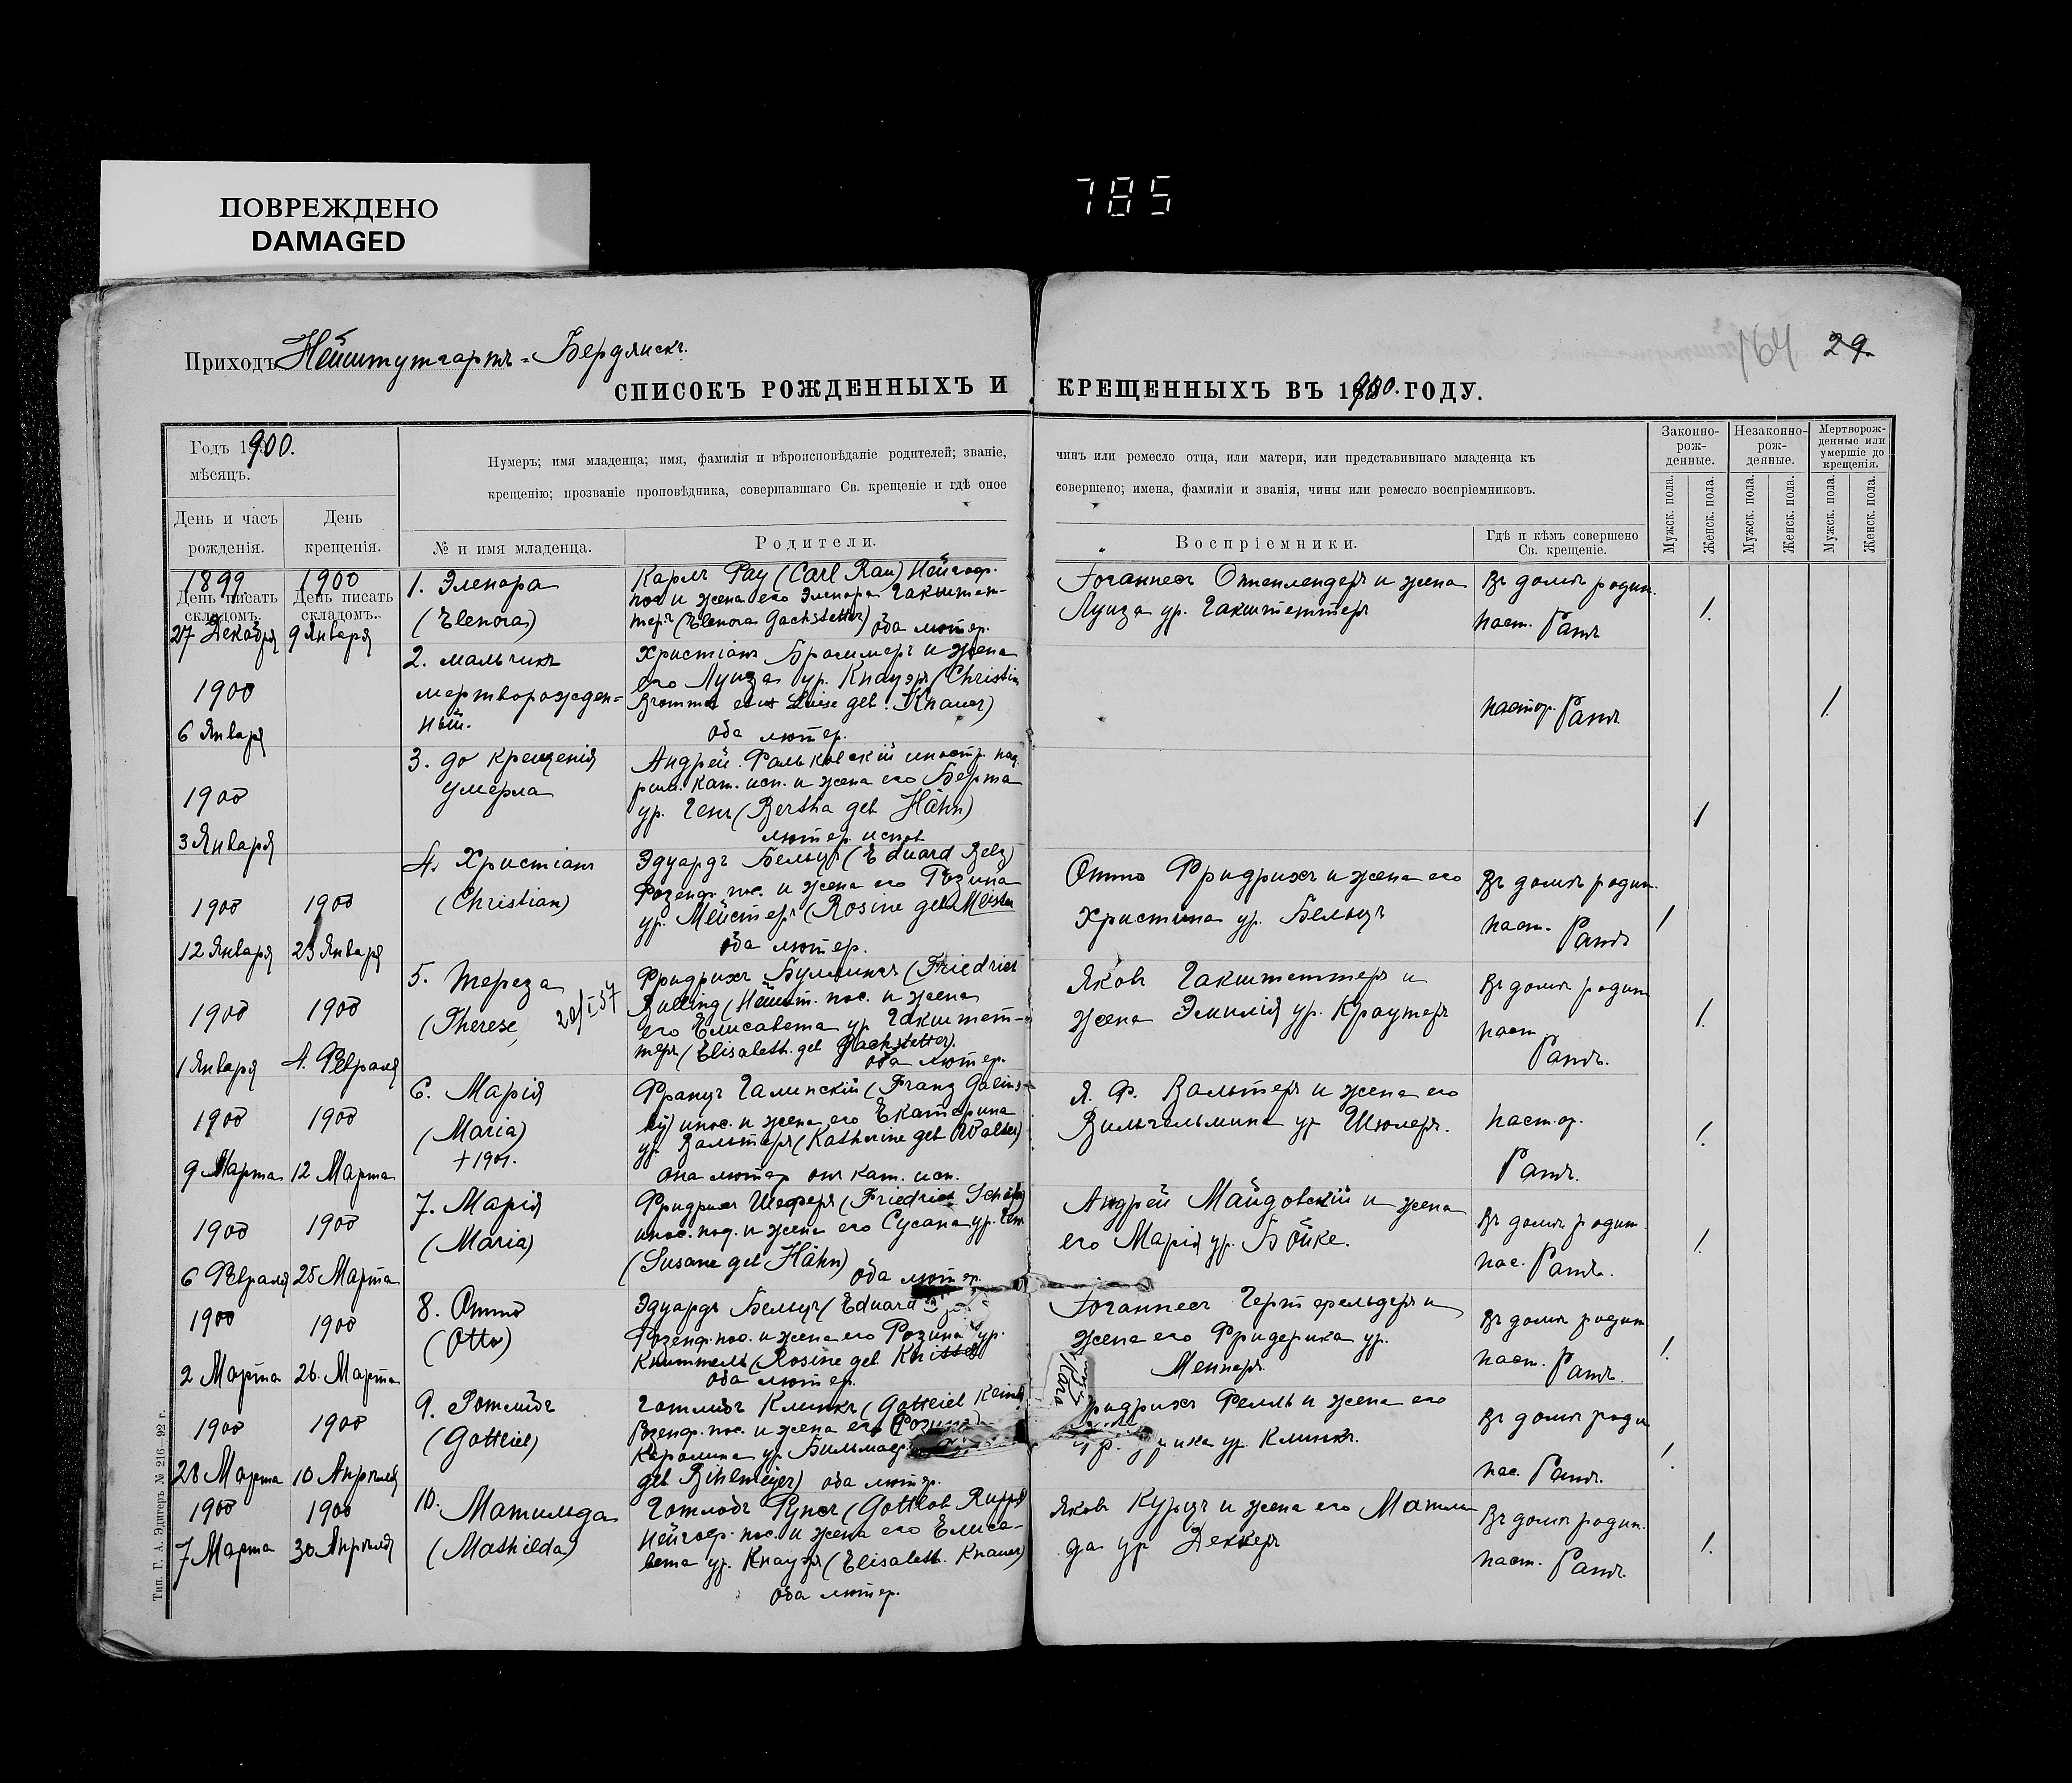 ПОВРЕЖДЕНО
DAMAGED
785
Приходъ Нейштутгартъ-Бердянскъ.
29.
СПИСОКЪ РОЖДЕННЫХЪ И КРЕЩЕННЫХЪ ВЪ 1900. ГОДУ.
Годъ 1900.
мѣсяцъ.
День и часъ рожденія.
День крещенія.
Нумеръ; имя младенца; имя, фамилія и вѣроисповѣданіе родителей; званіе, чинъ или ремесло отца, или матери, или представившаго младенца къ
крещенію; прозваніе проповѣдника, совершавшаго Св. крещеніе и гдѣ оное совершено; имена, фамиліи и званія, чины или ремесло воспріемниковъ.
№ и имя младенца.
Родители.
Воспріемники.
Гдѣ и кѣмъ совершено Св. крещеніе.
Законно-рож-денные.
Незаконно-рож-денные.
Мертворож-денные или умершіе до крещенія.
Мужск. пола.
Женск. пола.
Мужск. пола.
Женск. пола.
Мужск. пола.
Женск. пола.
День писать складомъ.
День писать складомъ.
1899
27 Декабря
1900
9 Января
1. Эленора
(Elenora)
Карлъ Рау (Carl Rau) Нейгоф.
пос и жена его Эленора Гакштет-
теръ (Elenora Gachstetter) оба лютер.
Іоганнесъ Оппенлендеръ и жена
Луиза ур. Гакштеттеръ
Въ домѣ родит.
паст. Ратъ
1.
1900
6 Января
2. мальчикъ
мертворожден-
ный.
Христіанъ Броммеръ и жена
его Луиза ур. Кнауэръ (Christian
Brommer et ux Luise geb. Knauer)
оба лютер.
пастор. Ратъ
1.
1900
3 Января
3. до крещенія
умерла
Андрей Фальковскій иностр. под.
рим. кат. исп. и жена его Берта
ур. Генъ (Bertha geb Hähn)
лютер. испов
1
1900
12 Января
1900
23 Января
4. Христіанъ
(Christian)
Эдуардъ Бельцъ (Eduard Belz)
Розенф. пос. и жена его Розина
ур. Мейстеръ (Rosine geb Meister
оба лютер.
Отто Фридрихъ и жена его
Христина ур. Бельцъ
Въ домѣ родит.
паст. Ратъ
1
1900
1 Января
1900
4. Февраля
5. Тереза
(Therese,
Фридрихъ Буллингъ (Friedrich
Bulling) Нейшт. пос. и жена
его Елисавета ур. Гакштет-
теръ (Elisabeth. geb Gachstetter).
оба лютер.
Яковъ Гакштеттеръ и
жена Эмилія ур. Краутеръ
Въ домѣ родит
паст.
Ратъ.
1.
1900
9 Марта
1900
12 Марта
6. Марія
(Maria)
+ 1901.
Францъ Галинскій (Franz Galins-
ky) инос. и жена его Екатерина
ур. Вальтеръ (Katherine geb Walter)
она лютер онъ кат. исп.
Я. Ф. Вальтеръ и жена его
Вильгельмина ур Шюлеръ.
пастор.
Ратъ.
1.
1900
6 Февраля
1900
25 Марта
7. Марія
(Maria)
Фридрихъ Шеферъ (Friedrich Schäfer)
инос. под. и жена его Сусана ур. Генъ
(Susane geb Hähn)
оба лютер.
Андрей Майдовскій и жена
его Марія ур. Бойке.
Въ домѣ родит.
пас. Ратъ.
1.
1900
2 Марта
1900
26. Марта
8. Отто
(Otto)
Эдуардъ Бельцъ (Eduard
Розенф. пос. и жена его Розина ур.
Книттель (Rosine geb. Knittel
оба лютер.
Іоганнесъ Гертфельдеръ и
жена его Фридерика ур.
Меннеръ.
Въ домѣ родит
паст. Ратъ.
1.
1900
28 Марта
1900
10 Апрѣля
9. Готлибъ
(Gottlieb)
Готлибъ Клинкъ (Gottlieb
Розенф. пос. и жена его
Каролина ур.
geb Bihlmeijer) оба лютер.
ридрихъ Фелль и жена его
ур. Клинкъ.
Въ домѣ роди
пас. Ратъ.
1.
1900
7 Марта
1900
30 Апрѣля
10. Матильда
(Mathilda)
Готлобъ Рупъ (Gottlob Rupp)
Нейгоф. пос. и жена его Елиса-
вета ур. Кнауэръ (Elisabeth. Knauer)
оба лютер.
Яковъ Курцъ и жена его Матиль
да ур Деккеръ
Въ домѣ родит.
паст. Ратъ.
1.
Тип. Г. А. Эдигеръ № 216—92 г.